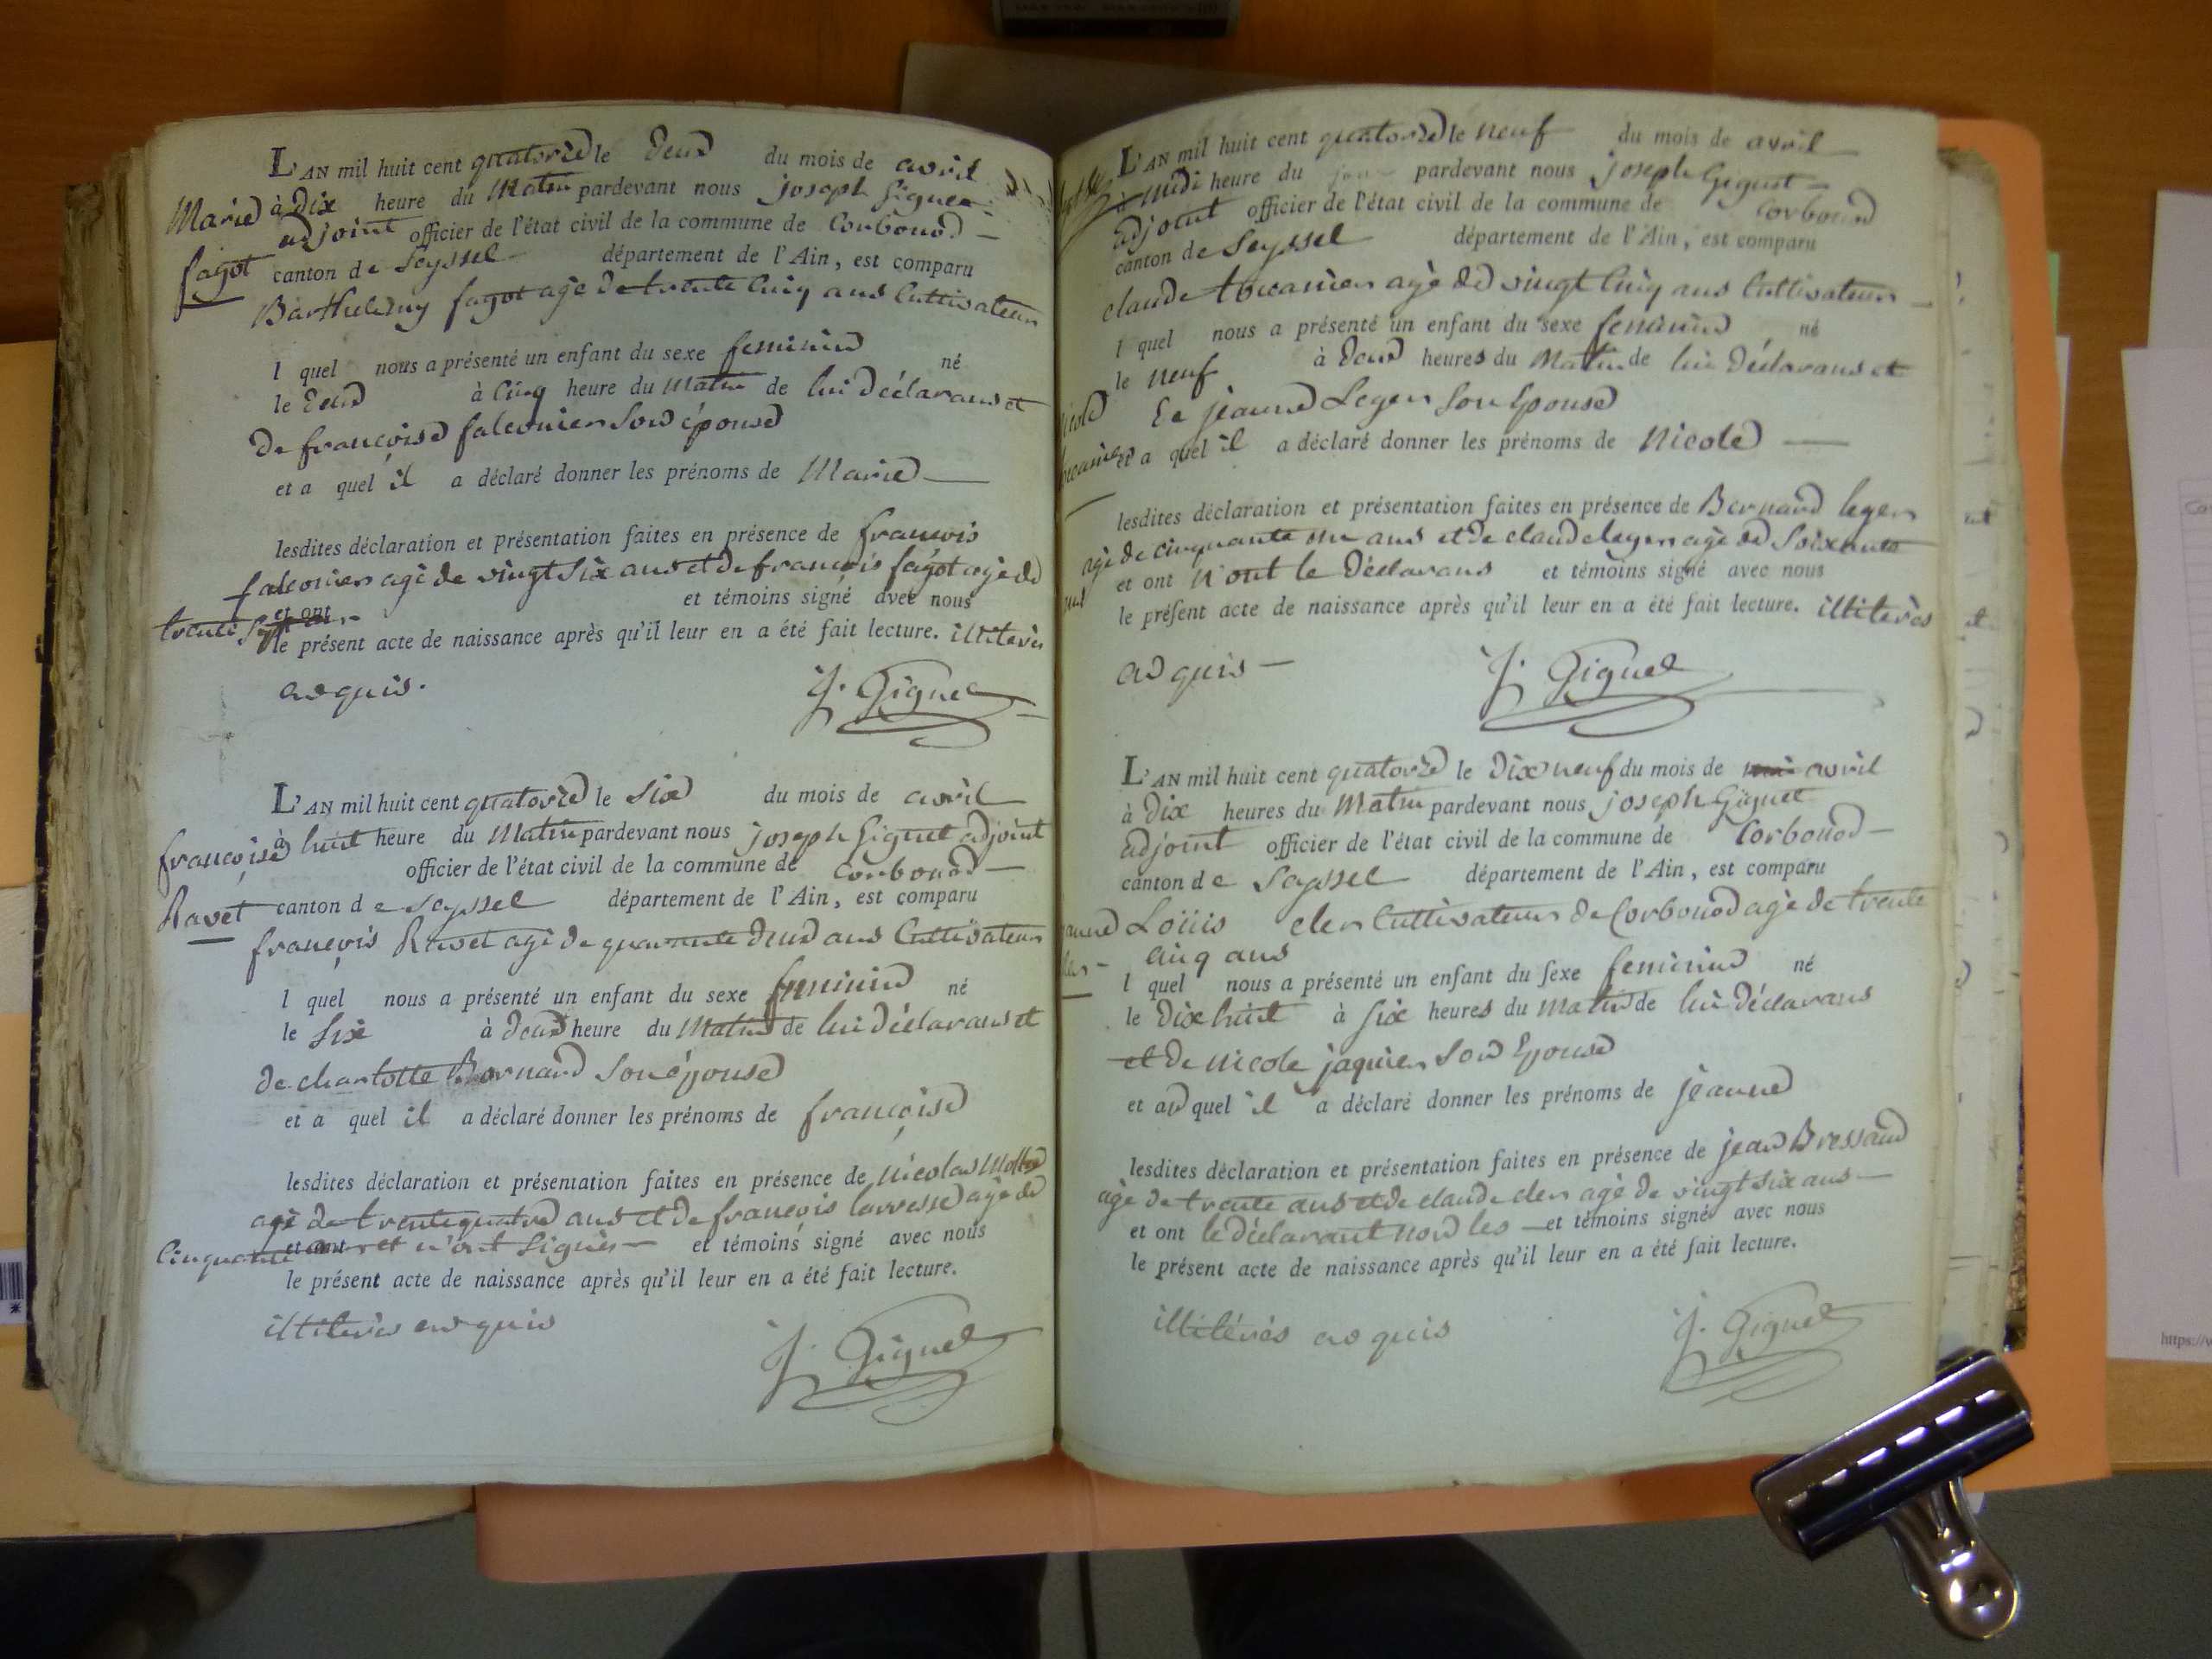 L'AN mil huit cent quatorze le deux du mois de avril
Marie à dix heure du Matin pardevant nous joseph Giguet
adjoint officier de l'état civil de la commune de Corbonod
fagot canton de Seyssel département de l'Ain, est comparu
Barthelemy fagot agé de trente Cinq ans Cultivateur
l quel nous a présenté un enfant du sexe feminin né
le deux à Cinq heure du Matin de lui déclarans et
de françoise falconier Son épouse
et a quel il a déclaré donner les prénoms de Marie
lesdites déclaration et présentation faites en présence de francois
falconier agé de vingt Six ans et de francois fagot agé de
trente et ont et témoins signé avec nous
le présent acte de naissance après qu'il leur en a été fait lecture. illiterés
de
quis.
J. Giguet
L'AN mil huit cent quatorze le Six du mois de avril
françoise à huit heure du Matin pardevant nous joseph Giguet adjoint
officier de l'état civil de la commune de Corbonod
Ravet canton de Seyssel département de l'Ain, est comparu
francois Ravet agé de quarante deux ans Cultivateur
l quel nous a présenté un enfant du sexe feminin né
le Six à deux heure du Matin de lui déclarans et
de charlotte Bornard Son épouse
et a quel il a déclaré donner les prénoms de françoise
lesdites déclaration et présentation faites en présence de nicolas Mottet
agé de trente quatre ans et de francois agé de
Cinquante et ont et n'ont Signés et témoins signé avec nous
le présent acte de naissance après qu'il leur en a été fait lecture.
illiterés requis
J. Giguet
L'AN mil huit cent quatorze le neuf du mois de avril
à midi heure du jour pardevant nous joseph Giguet
adjoint officier de l'état civil de la commune de Corbonod
canton de Seyssel département de l'Ain, est comparu
claude agé de vingt Cinq ans Cultivateur
l quel nous a présenté un enfant du sexe feminin né
le neuf à deux heures du Matin de lui déclarans et
De jeanne Leger Son Epouse
et a quel il a déclaré donner les prénoms de Nicole
lesdites déclaration et présentation faites en présence de Bernard leger
agé de cinquante un ans et de claude leger agé de Soixante
et ont n'ont le déclarans et témoins signé avec nous
le présent acte de naissance après qu'il leur en a été fait lecture. illiterés
requis
J. Giguet
L'AN mil huit cent quatorze le dix neuf du mois de avril
à dix heures du Matin pardevant nous joseph Giguet
adjoint officier de l'état civil de la commune de Corbonod
canton de Seyssel département de l'Ain, est comparu
Loüis cler Cultivateur de Corbonod agé de trente
cinq ans
l quel nous a présenté un enfant du sexe feminin né
le dix huit à Six heures du matin de lui déclarans
et de nicole jaquier Son Epouse
et au quel il a déclaré donner les prénoms de jeanne
lesdites déclaration et présentation faites en présence de jean Bressand
agé de trente ans et de claude cler agé de vingt Six ans
et ont le déclarant non les et témoins signé avec nous
le présent acte de naissance après qu'il leur en a été fait lecture.
illitérés requis
J. Giguet